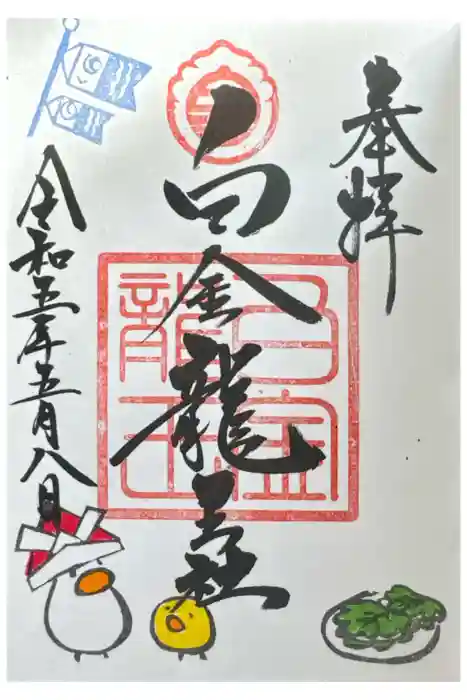 奉拝
白金龍王社
令和五年五月八日